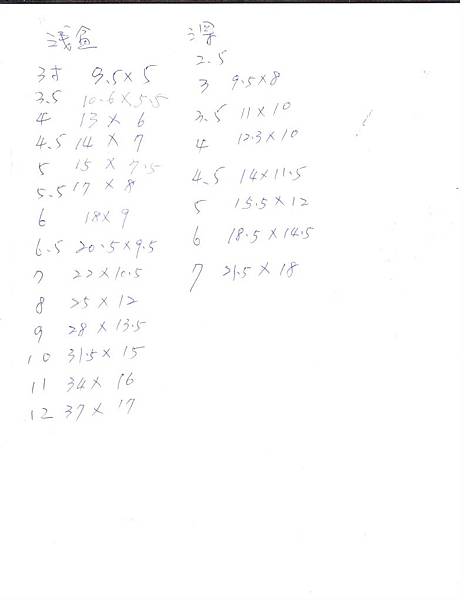 淺盆
3寸 9.5×5
3.5 10.6×5.5
4 13×6
4.5 14×7
5 15×7.5
5.5 17×8
6 18×9
6.5 20.5×9.5
7 22×10.5
8 25×12
9 28×13.5
10 31.5×15
11 34×16
12 37×17
深
2.5
3 9.5×8
3.5 11×10
4 12.3×10
4.5 14×11.5
5 15.5×12
6 18.5×14.5
7 21.5×18